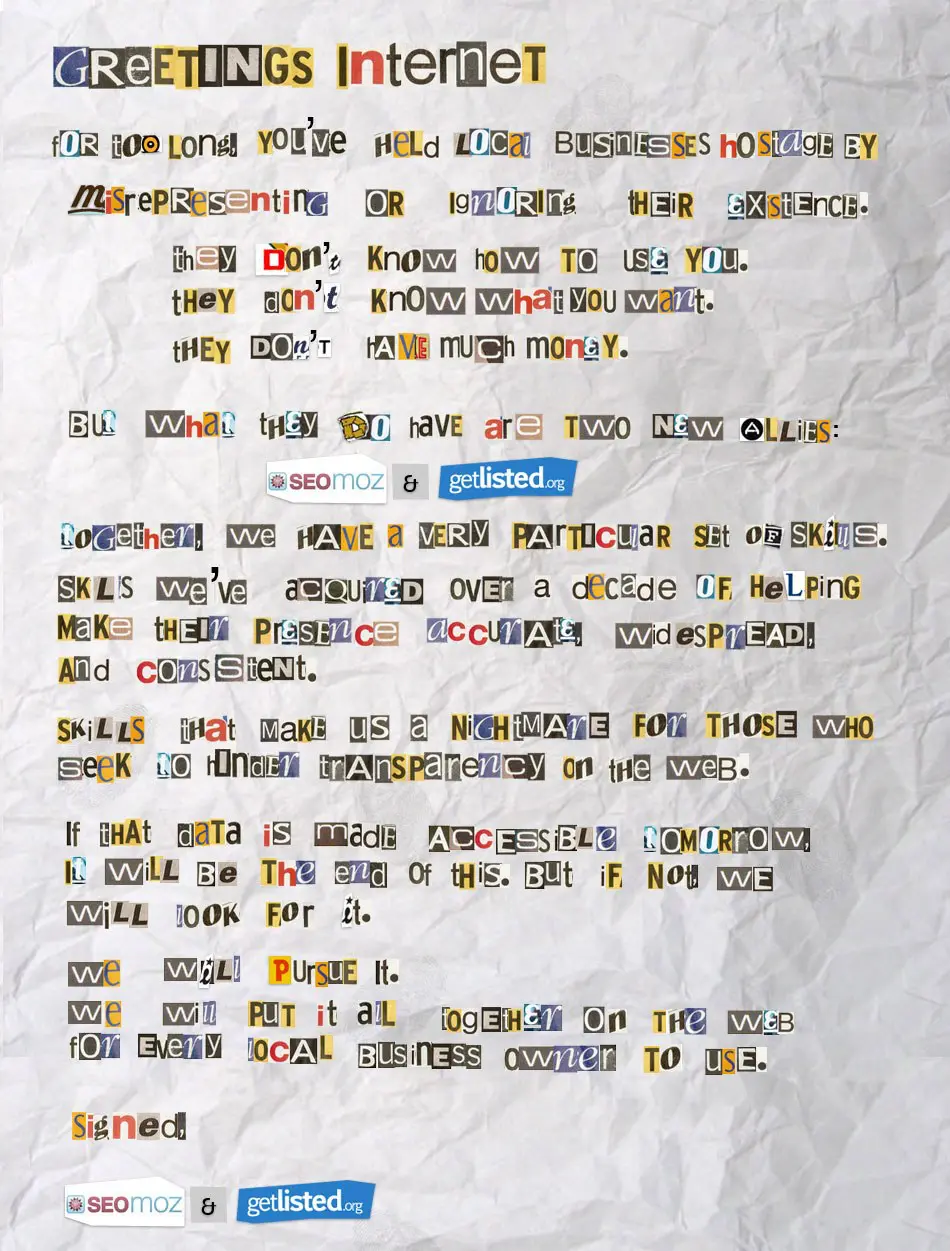 GREETINGS INTERNET
FOR TOO LONG, YOU'VE HELD LOCAL BUSINESSES HOSTAGE BY
MISREPRESENTING OR IGNORING THEIR EXISTENCE.
THEY DON'T KNOW HOW TO USE YOU.
THEY DON'T KNOW WHAT YOU WANT.
THEY DON'T HAVE MUCH MONEY.
BUT WHAT THEY DO HAVE ARE TWO NEW ALLIES:
SEOmoz & getlisted.org
TOGETHER, WE HAVE A VERY PARTICULAR SET OF SKILLS.
SKLS WE'VE ACQUIRED OVER A DECADE OF HELPING
MAKE THEIR PRESENCE ACCURATE, WIDESPREAD,
AND CONSSTENT.
SKILLS THAT MAKE US A NIGHTMARE FOR THOSE WHO
SEEK TO HINDER TRANSPARENCY ON THE WEB.
IF THAT DATA IS MADE ACCESSIBLE TOMORROW,
IT WILL BE THE END OF THIS. BUT IF NOT, WE
WILL LOOK FOR IT.
WE WILL PURSUE IT.
WE WILL PUT IT ALL TOGETHER ON THE WEB
FOR EVERY LOCAL BUSINESS OWNER TO USE.
SIGNED,
SEOmoz & getlisted.org